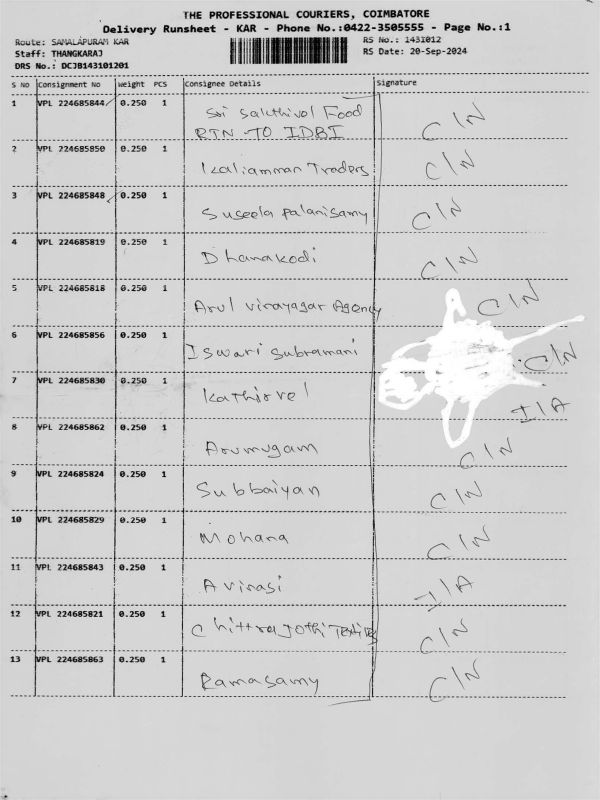 THE PROFESSIONAL COURIERS, COIMBATORE
Delivery Runsheet - KAR - Phone No.:0422-3505555 - Page No.:1
Route: SAMALAPURAM KAR
RS No.: 1431012
Staff: THANGKARAJ
RS Date: 20-Sep-2024
DRS No.: DCJB143101201
S NO Consignment No Weight PCS Consignee Details Signature
1 VPL 224685844 0.250 1 Sri Sakthivel Food C/N
RTN TO IDBI
2 VPL 224685850 0.250 1 Kaliamman Traders C/N
3 VPL 224685848 0.250 1 Suseela Palanisamy C/N
4 VPL 224685819 0.250 1 Dhanakodi C/N
5 VPL 224685818 0.250 1 Arul vinayagar Agency C/N
6 VPL 224685856 0.250 1 Iswari Subramani C/N
7 VPL 224685830 0.250 1 Kathirvel I/A
8 VPL 224685862 0.250 1 Arumugam C/N
9 VPL 224685824 0.250 1 Subbaiyan C/N
10 VPL 224685829 0.250 1 Mohana C/N
11 VPL 224685843 0.250 1 Avinasi I/A
12 VPL 224685821 0.250 1 Chittra Jothi Textiles C/N
13 VPL 224685863 0.250 1 Ramasamy C/N